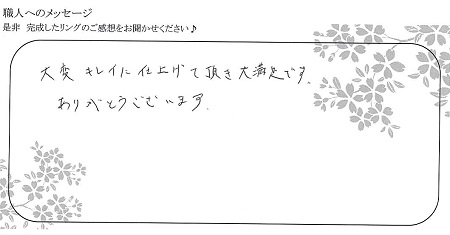 職人へのメッセージ
是非 完成したリングのご感想をお聞かせください♪
大変 キレイに 仕上げて頂き 大満足です。
ありがとうございます。